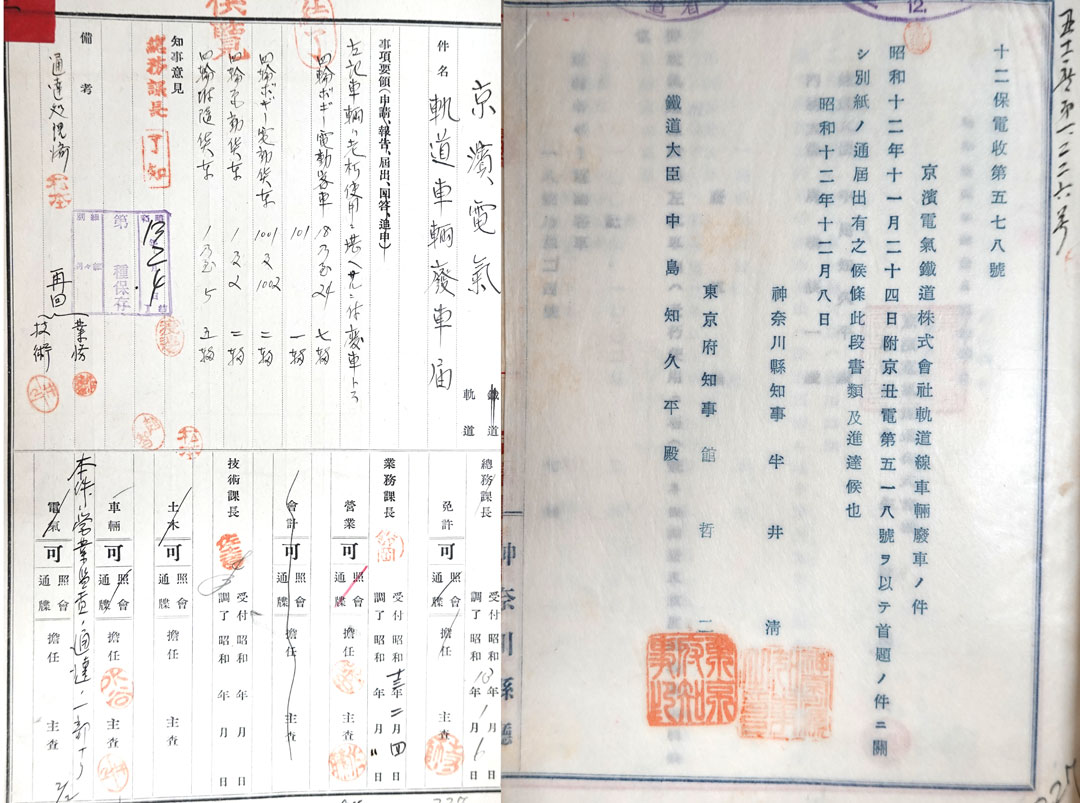 五十二
十二保電收第五七八號
京濱電氣鐵道株式會社軌道線車輛廢車ノ件
昭和十二年十一月二十四日附京丑電第五一八號ヲ以テ首題ノ件ニ關
シ別紙ノ通屆出有之候條此段書類及進達候也
昭和十二年十二月八日
神奈川縣知事 半井清
東京府知事 館哲二
鐵道大臣 中島知久平殿
神奈川縣廳
東京府知事印
12.
供覽
鐵道
軌道
京濱電氣
件名
軌道車輛廢車届
事項要領(申請、報告、屆出、囘答、進申)
左記車輛ハ老朽使用ニ堪ヘサルニ付廢車トス
四輪ボギー電動客車 18乃至24 七輛
101 一輛
四輪ボギー電動貨車 1001 及 1002 二輛
四輪電動貨車 1 及 2 二輛
四輪附隨貨車 1乃至5 五輛
知事意見
總務課長 了知
備考
第 種保存
13.2.4
再回
業務
技術
總務課長 受付 昭和13年1月6日
調了 昭和 年 月 日
免許 可 照會 通牒 擔任 主査
業務課長 受付 昭和 年 月 日
調了 昭和十三年二月四日
營業 可 照會 通牒 擔任 主査
會計 可 照會 通牒 擔任 主査
技術課長 受付 昭和 年 月 日
調了 昭和 年 月 日
土木 可 照會 通牒 擔任 主査
車輛 可 照會 通牒 擔任 主査
電氣 可 照會 通牒 擔任 主査
2/2